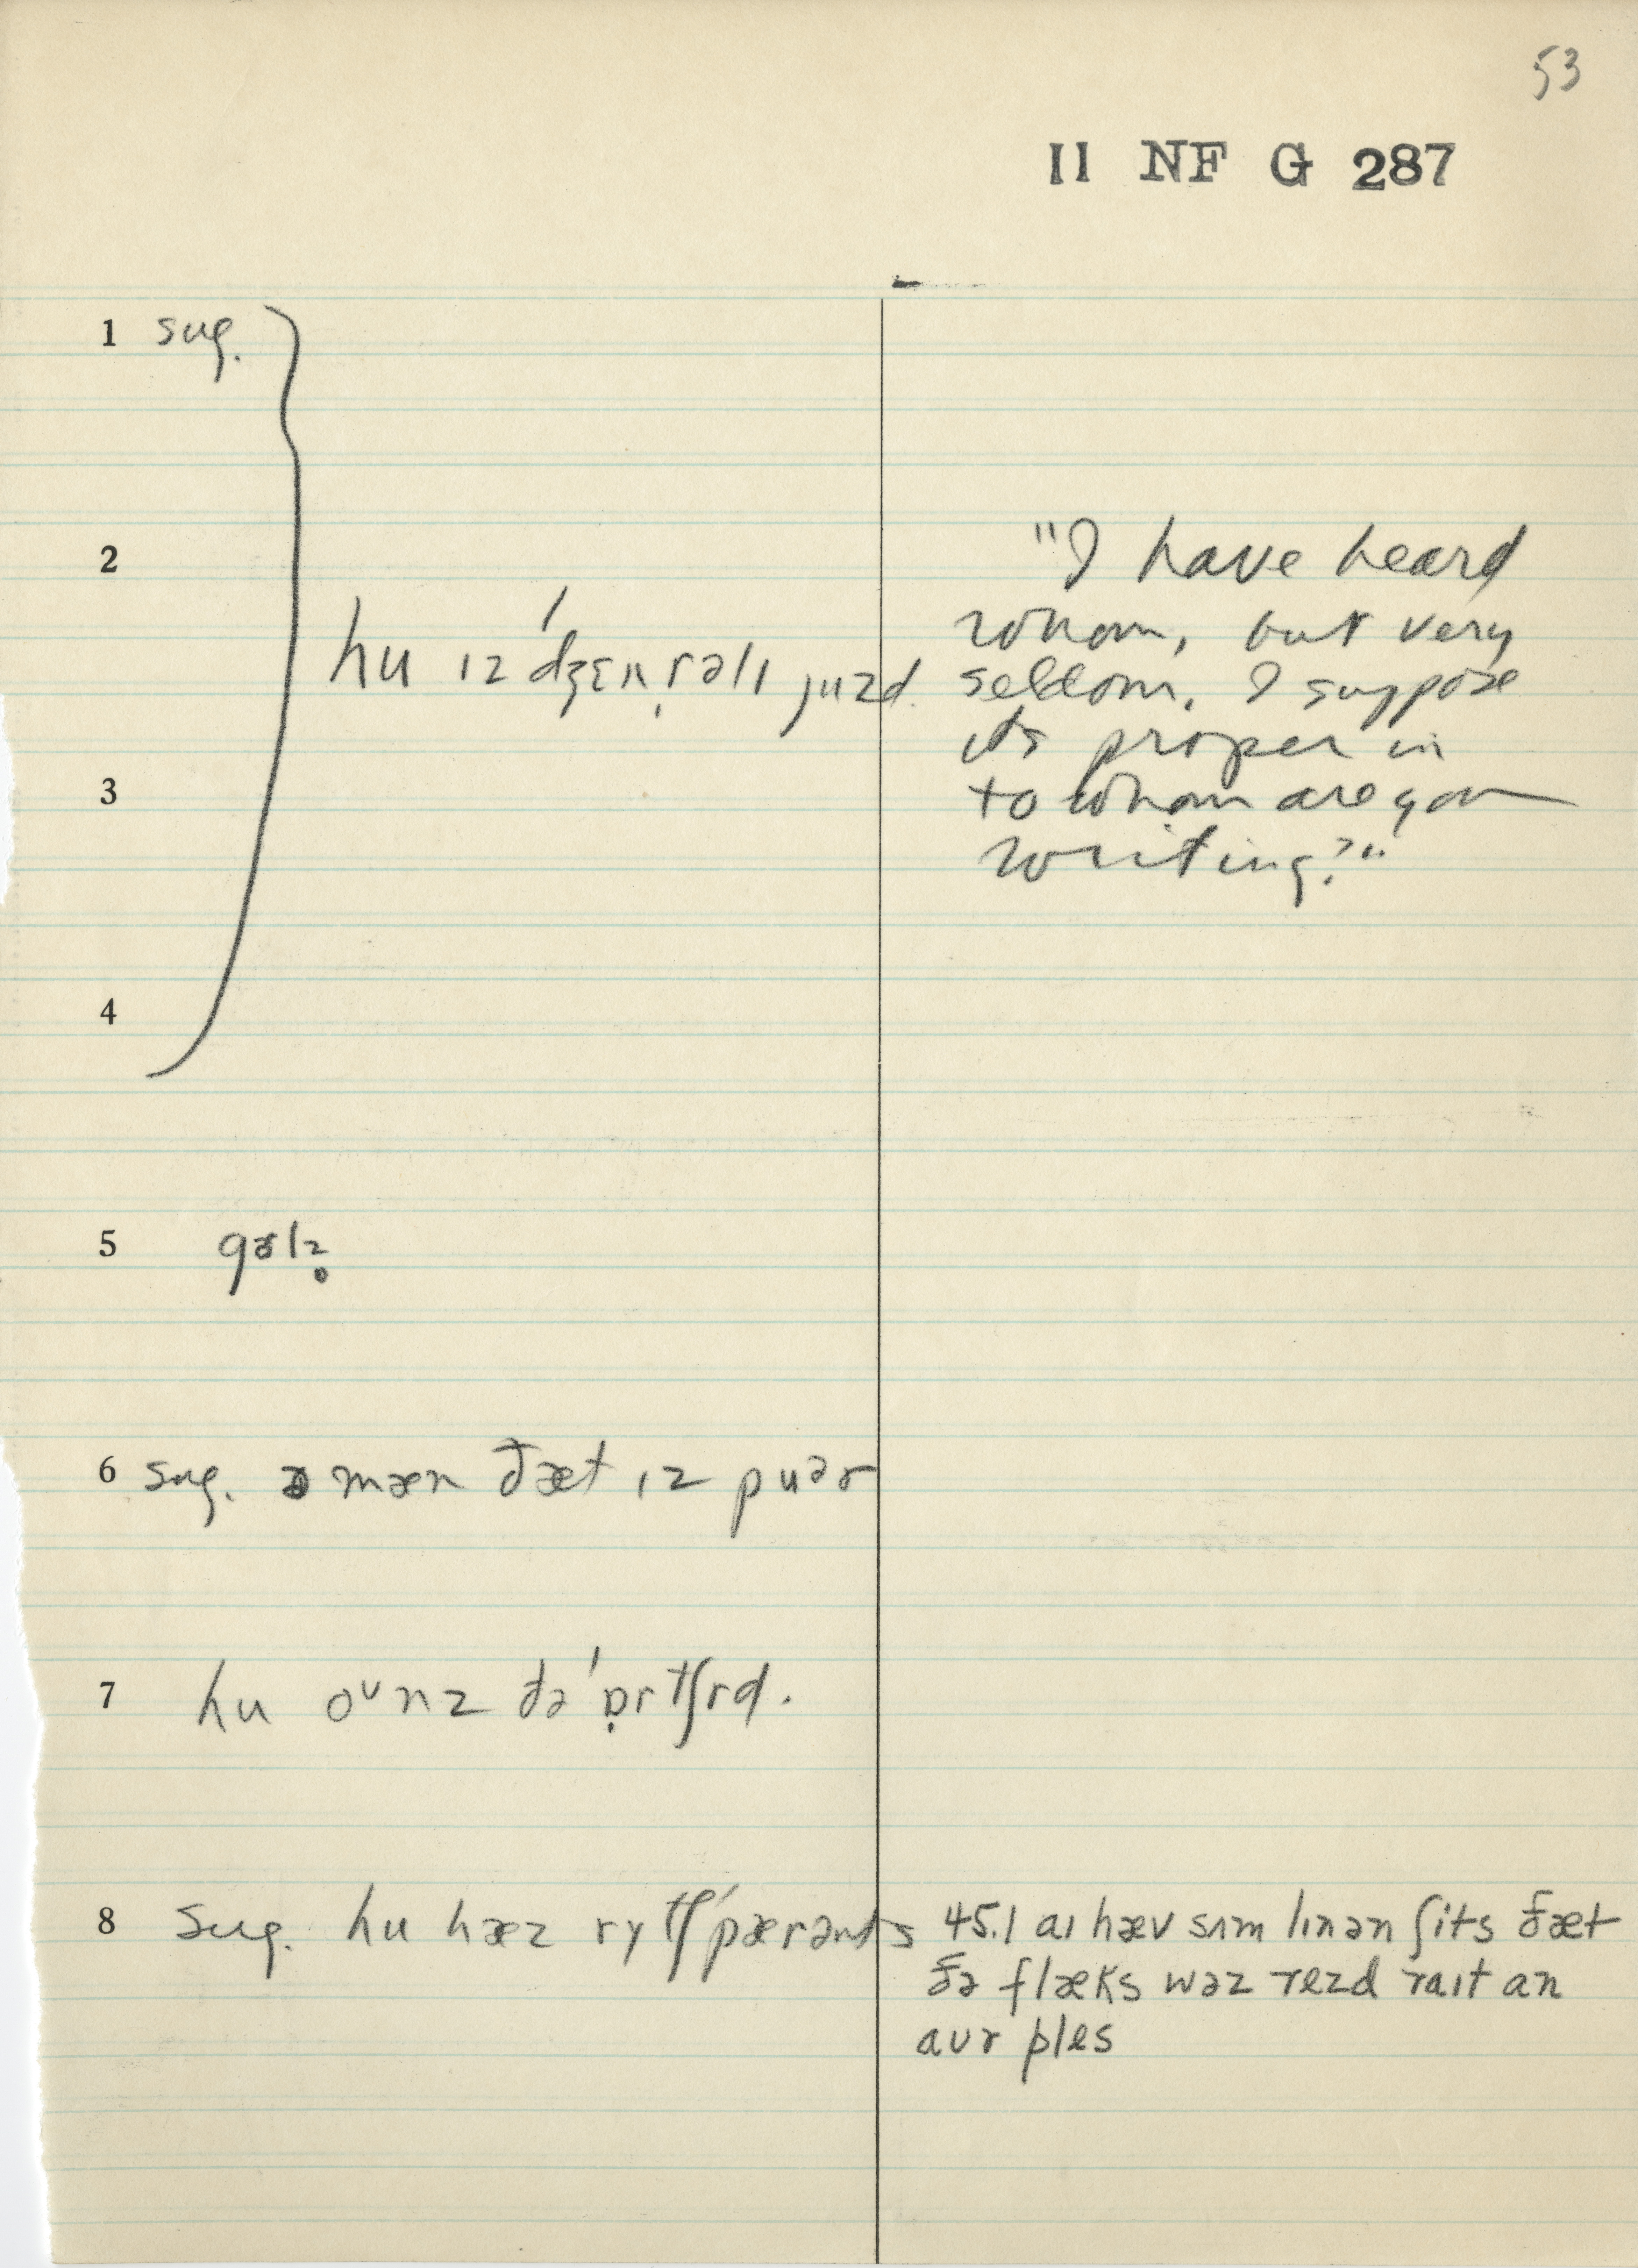 53
II NF G 287
1 sug.
2
hu ɪz ˈdʒɛn̩rəlɪ juzd.
"I have heard
whom, but very
seldom, I suppose
its proper in
3
to whom are you
writing?"
4
5 gɚlz̥
6 sug. ə mæn ðæt ɪz puər
7 hu oᴜnz ðə ˈɒ̣rtʃrd.
8 sug. hu hæz rɪtʃ ˈpærənts
45.1 aɪ hæv sʌm lɪnən ʃits ðæt
ðə flæks wəz rezd raɪt an
aʊr ples